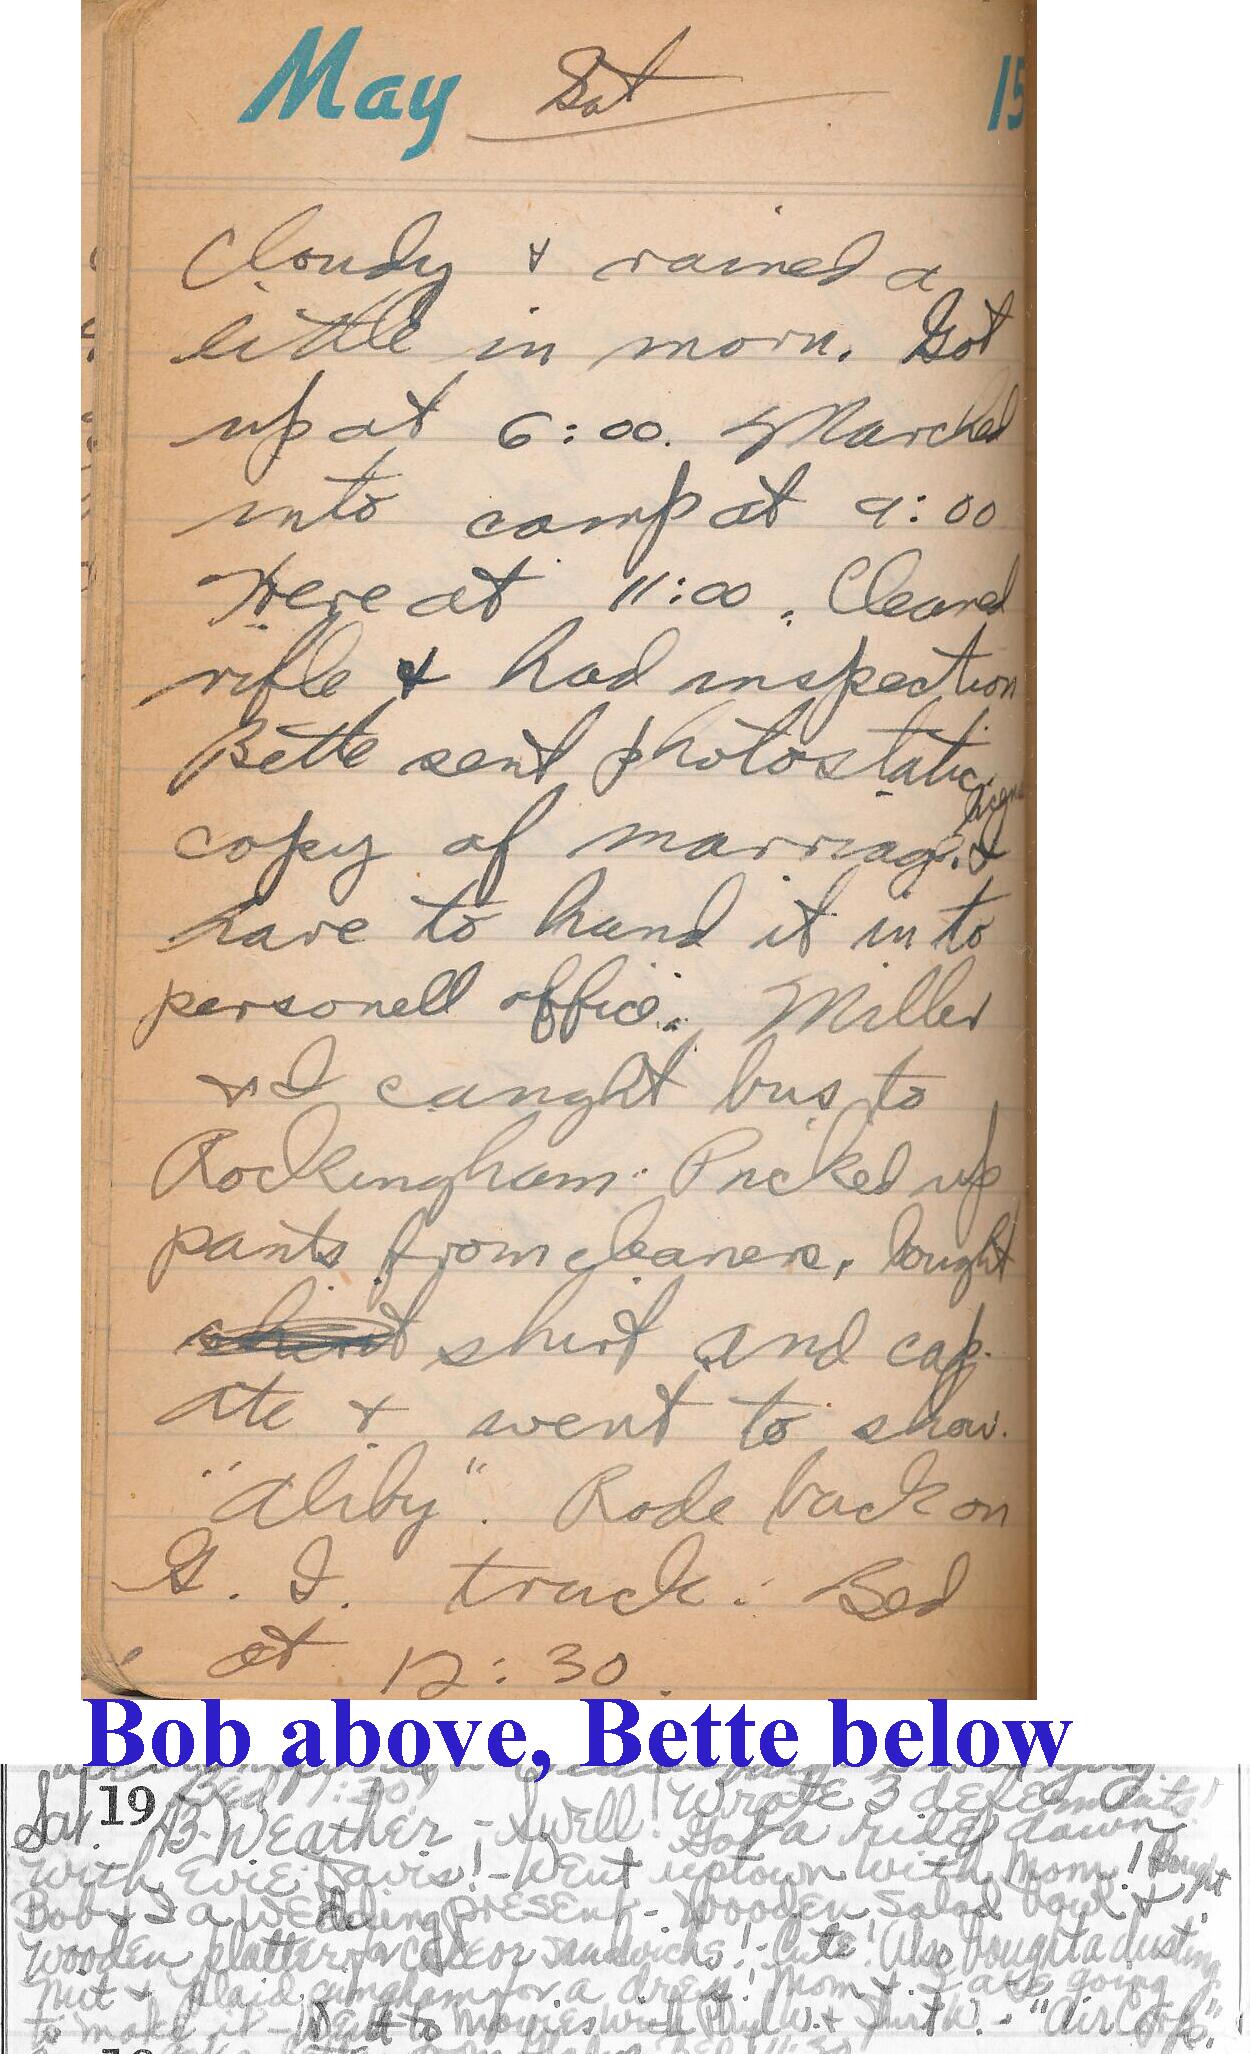 May Sat 15
Cloudy & rained a
little in morn. Got
up at 6:00. Marched
into camp at 9:00
Here at 11:00. Cleaned
rifle & had inspection
Bette sent photostatic
copy of marriage &
have to hand it in to
personell office. Miller
& I caught bus to
Rockingham. Picked up
pants from cleaners, bought
shirt and cap.
Ate & went to show.
"Aliby". Rode back on
G. I. truck. Bed
at 12:30.
Bob above, Bette below
Wrote 3
Sat. 19 43. Weather - Swell! Got a ride down
with Evie Davis! - Went uptown with Mom! Bought
Bob & I a wedding present - wooden salad bowl &
wooden platter for cake or sandwichs! - Cute! Also bought a dusting
mit & plaid gingham for a dress! Mom & I are going
to make it - Went to movies with & - "Air Corps".